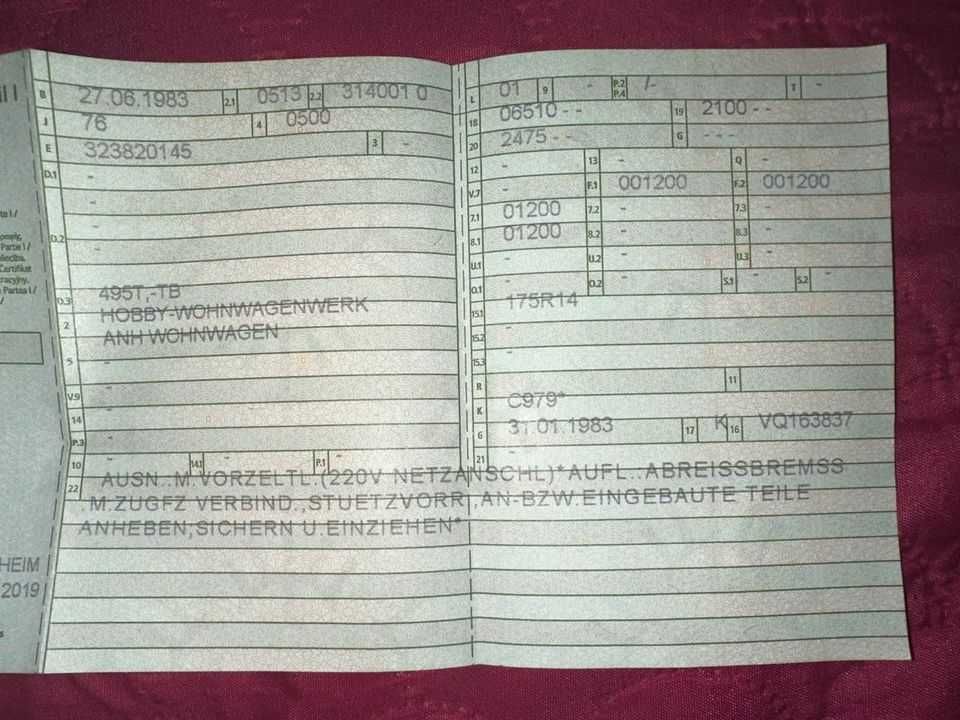 B 27.06.1983 2.1 0513 2.2 314001 0
J 76 4 0500
E 323820145 3 -
D.1 -
-
D.2 -
-
D.3 495T,-TB
2 HOBBY-WOHNWAGENWERK
5 ANH WOHNWAGEN
-
V.9 -
14 -
P.3 -
10 - 14.1 - P.1 -
L 01 9 - P.2 P.4 /- T -
18 06510 - - 19 2100 - -
20 2475 - - G - - -
12 - 13 - Q -
V.7 - F.1 001200 F.2 001200
7.1 01200 7.2 - 7.3 -
8.1 01200 8.2 - 8.3 -
U.1 - U.2 - U.3 -
O.1 - O.2 - S.1 - S.2 -
15.1 175R14
15.2 -
15.3 -
R 11
K C979*
6 31.01.1983 17 K 16 VQ163837
21 -
22 AUSN.:M.VORZELTL.(220V NETZANSCHL)*AUFL.:ABREISSBREMSS
.M.ZUGFZ VERBIND.,STUETZVORR.,AN-BZW.EINGEBAUTE TEILE
ANHEBEN,SICHERN U.EINZIEHEN*
HEIM
2019